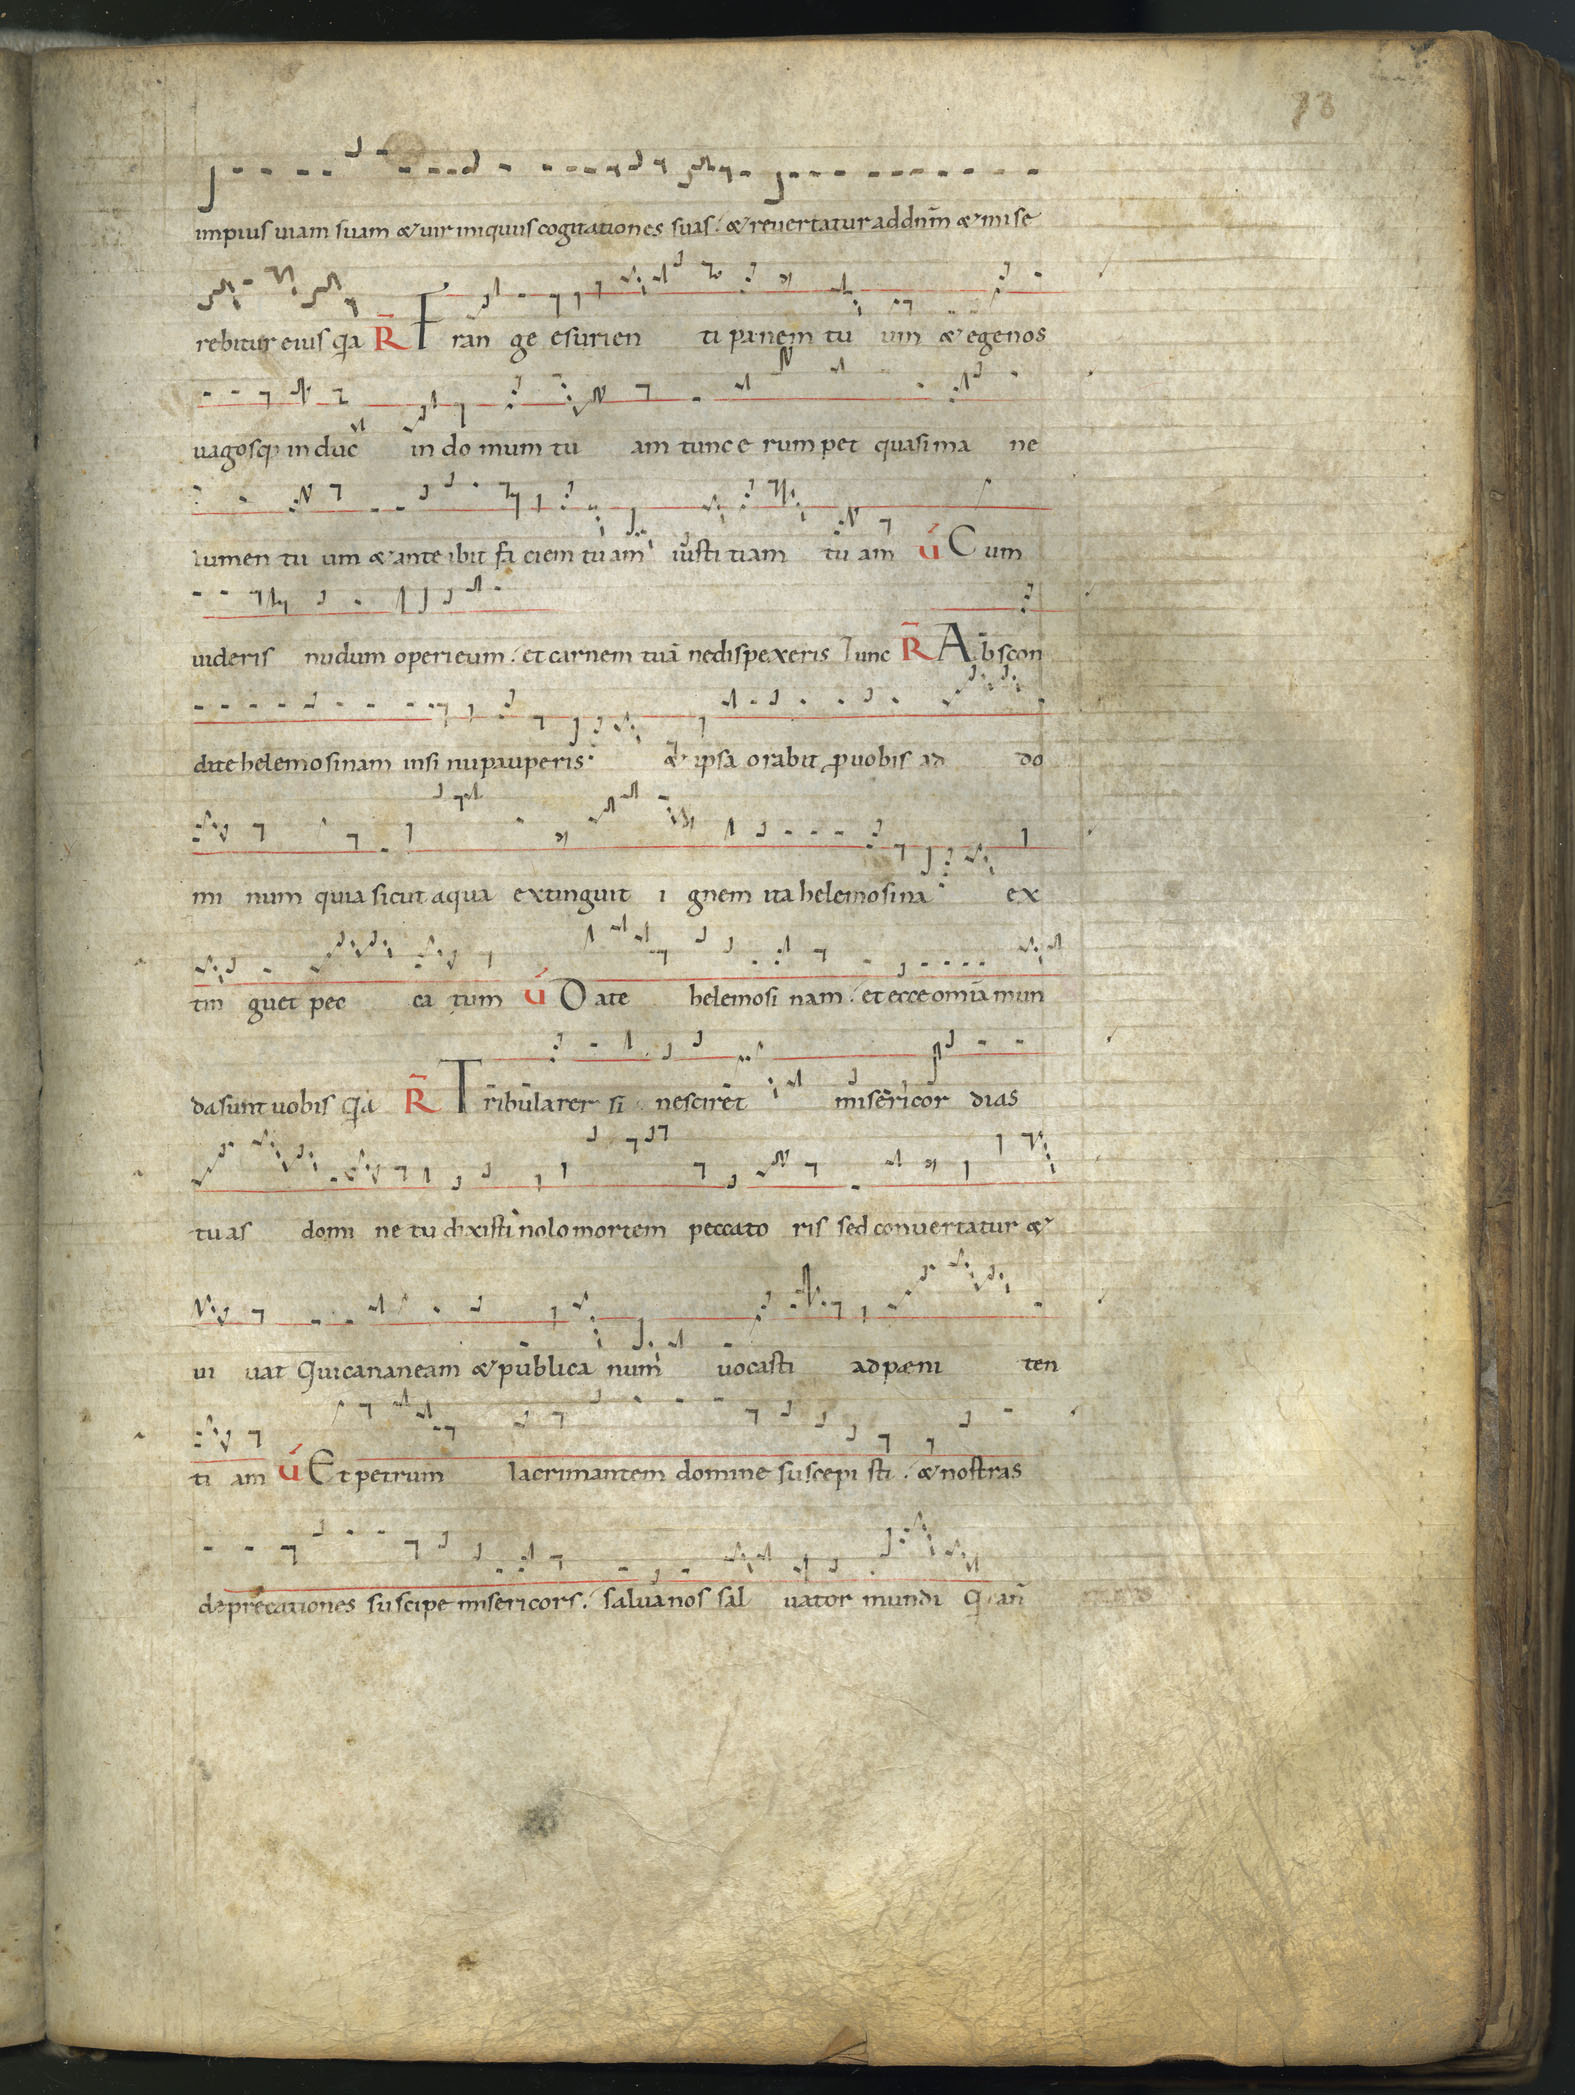 78
impius uiam suam & uir iniquus cogitationes suas . & reuertatur addnm̄ & mise
rebitur eius q̄a R̄ Fran ge esurien ti panem tu um & egenos
uagosq; in duc in do mum tu am tunc e rum pet quasi ma ne
lumen tu um & ante ibit fa ciem tu am iusti tiam tu am V́ Cum
uideris nudum operi eum . et carnem tuā nedispexeris Tunc R̄ Abscon
dite helemosinam insi nu pauperis & ipsa orabit ꝓ uobis ad do
mi num quia sicut aqua extinguit i gnem ita helemosina ex
tin guet pec ca tum V́ Date helemosi nam . et ecce omīa mun
da sunt uobis q̄a R̄ Tribularer si nescirēt misericor dias
tu as domi ne tu dixisti nolo mortem peccato ris sed conuertatur &
ui uat Qui cananeam & publica num uocasti ad pæni ten
ti am V́ Et petrum lacrimantem domine suscepi sti . & nostras
deprecationes suscipe misericors . salua nos sal uator mundi Q an̄